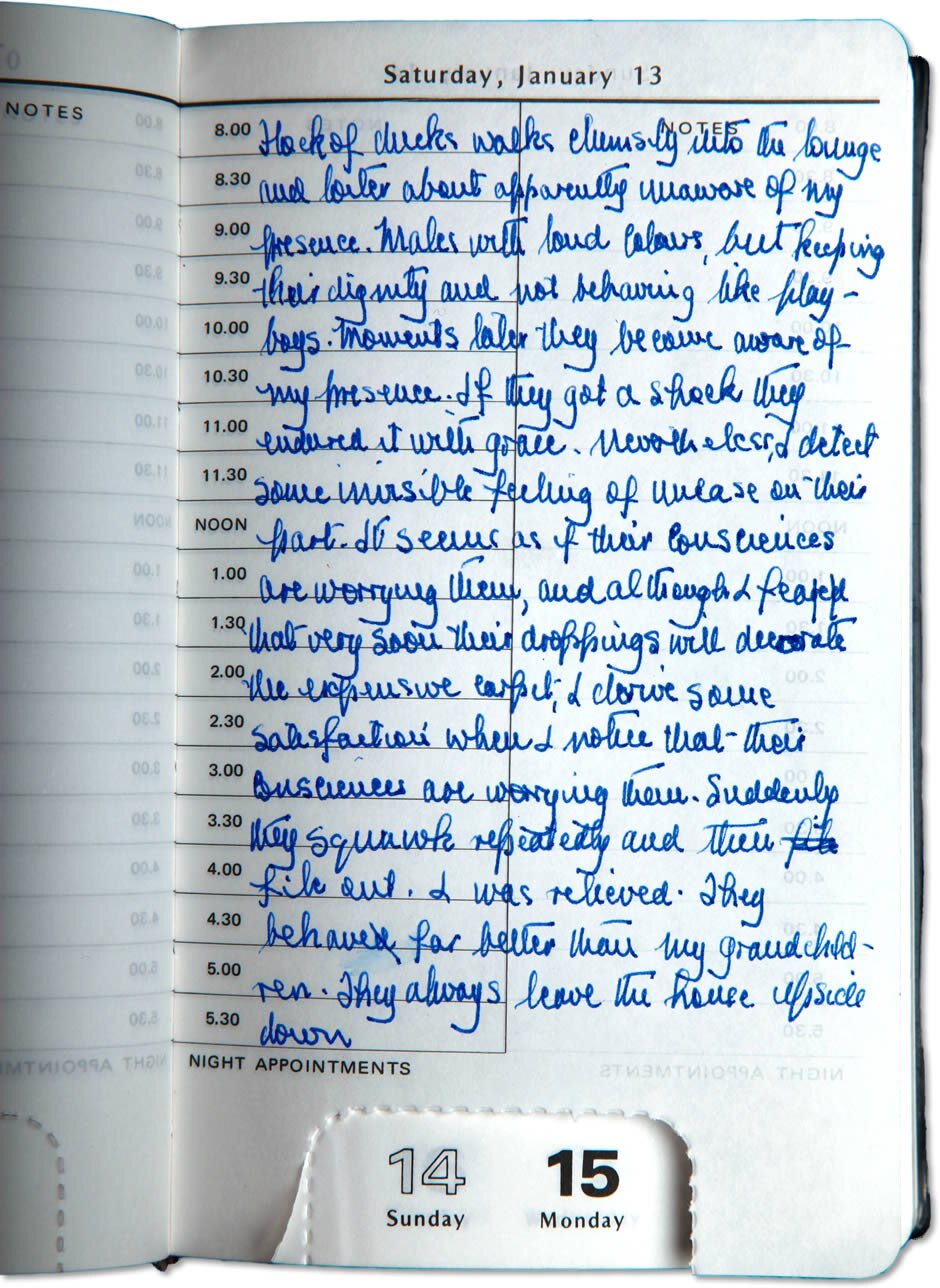 Saturday, January 13
NOTES
NOTES
8.00 Flock of ducks walks clumsily into the lounge
8.30 and loiter about apparently unaware of my
9.00 presence. Males with loud colours, but keeping
9.30 their dignity and not behaving like play-
10.00 boys. Moments later they become aware of
10.30 my presence. If they got a shock they
11.00 endured it with grace. Nevertheless, I detect
11.30 some invisible feeling of unease on their
NOON part. It seems as if their consciences
1.00 are worrying them, and although I fear
1.30 that very soon their droppings will decorate
2.00 the expensive carpet, I derive some
2.30 satisfaction when I notice that their
3.00 consciences are worrying them. Suddenly
3.30 they squawk repeatedly and then
4.00 file out. I was relieved. They
4.30 behaved far better than my grandchild-
5.00 ren. They always leave the house upside
5.30 down
NIGHT APPOINTMENTS
14 15
Sunday Monday